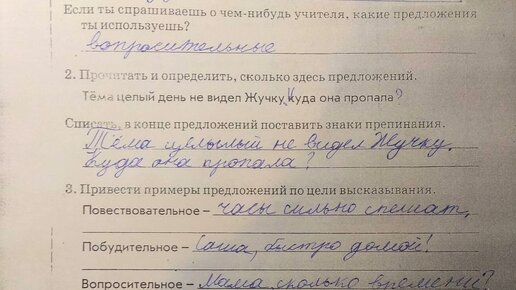 Если ты спрашиваешь о чем-нибудь учителя, какие предложения
ты используешь?
вопросительные
2. Прочитать и определить, сколько здесь предложений.
Тёма целый день не видел Жучку Куда она пропала?
Списать, в конце предложений поставить знаки препинания.
Тёма целый не видел Жучку.
Куда она пропала?
3. Привести примеры предложений по цели высказывания.
Повествовательное – часы сильно спешат.
Побудительное – Саша, быстро домой!
Вопросительное – Мама, сколько времени?